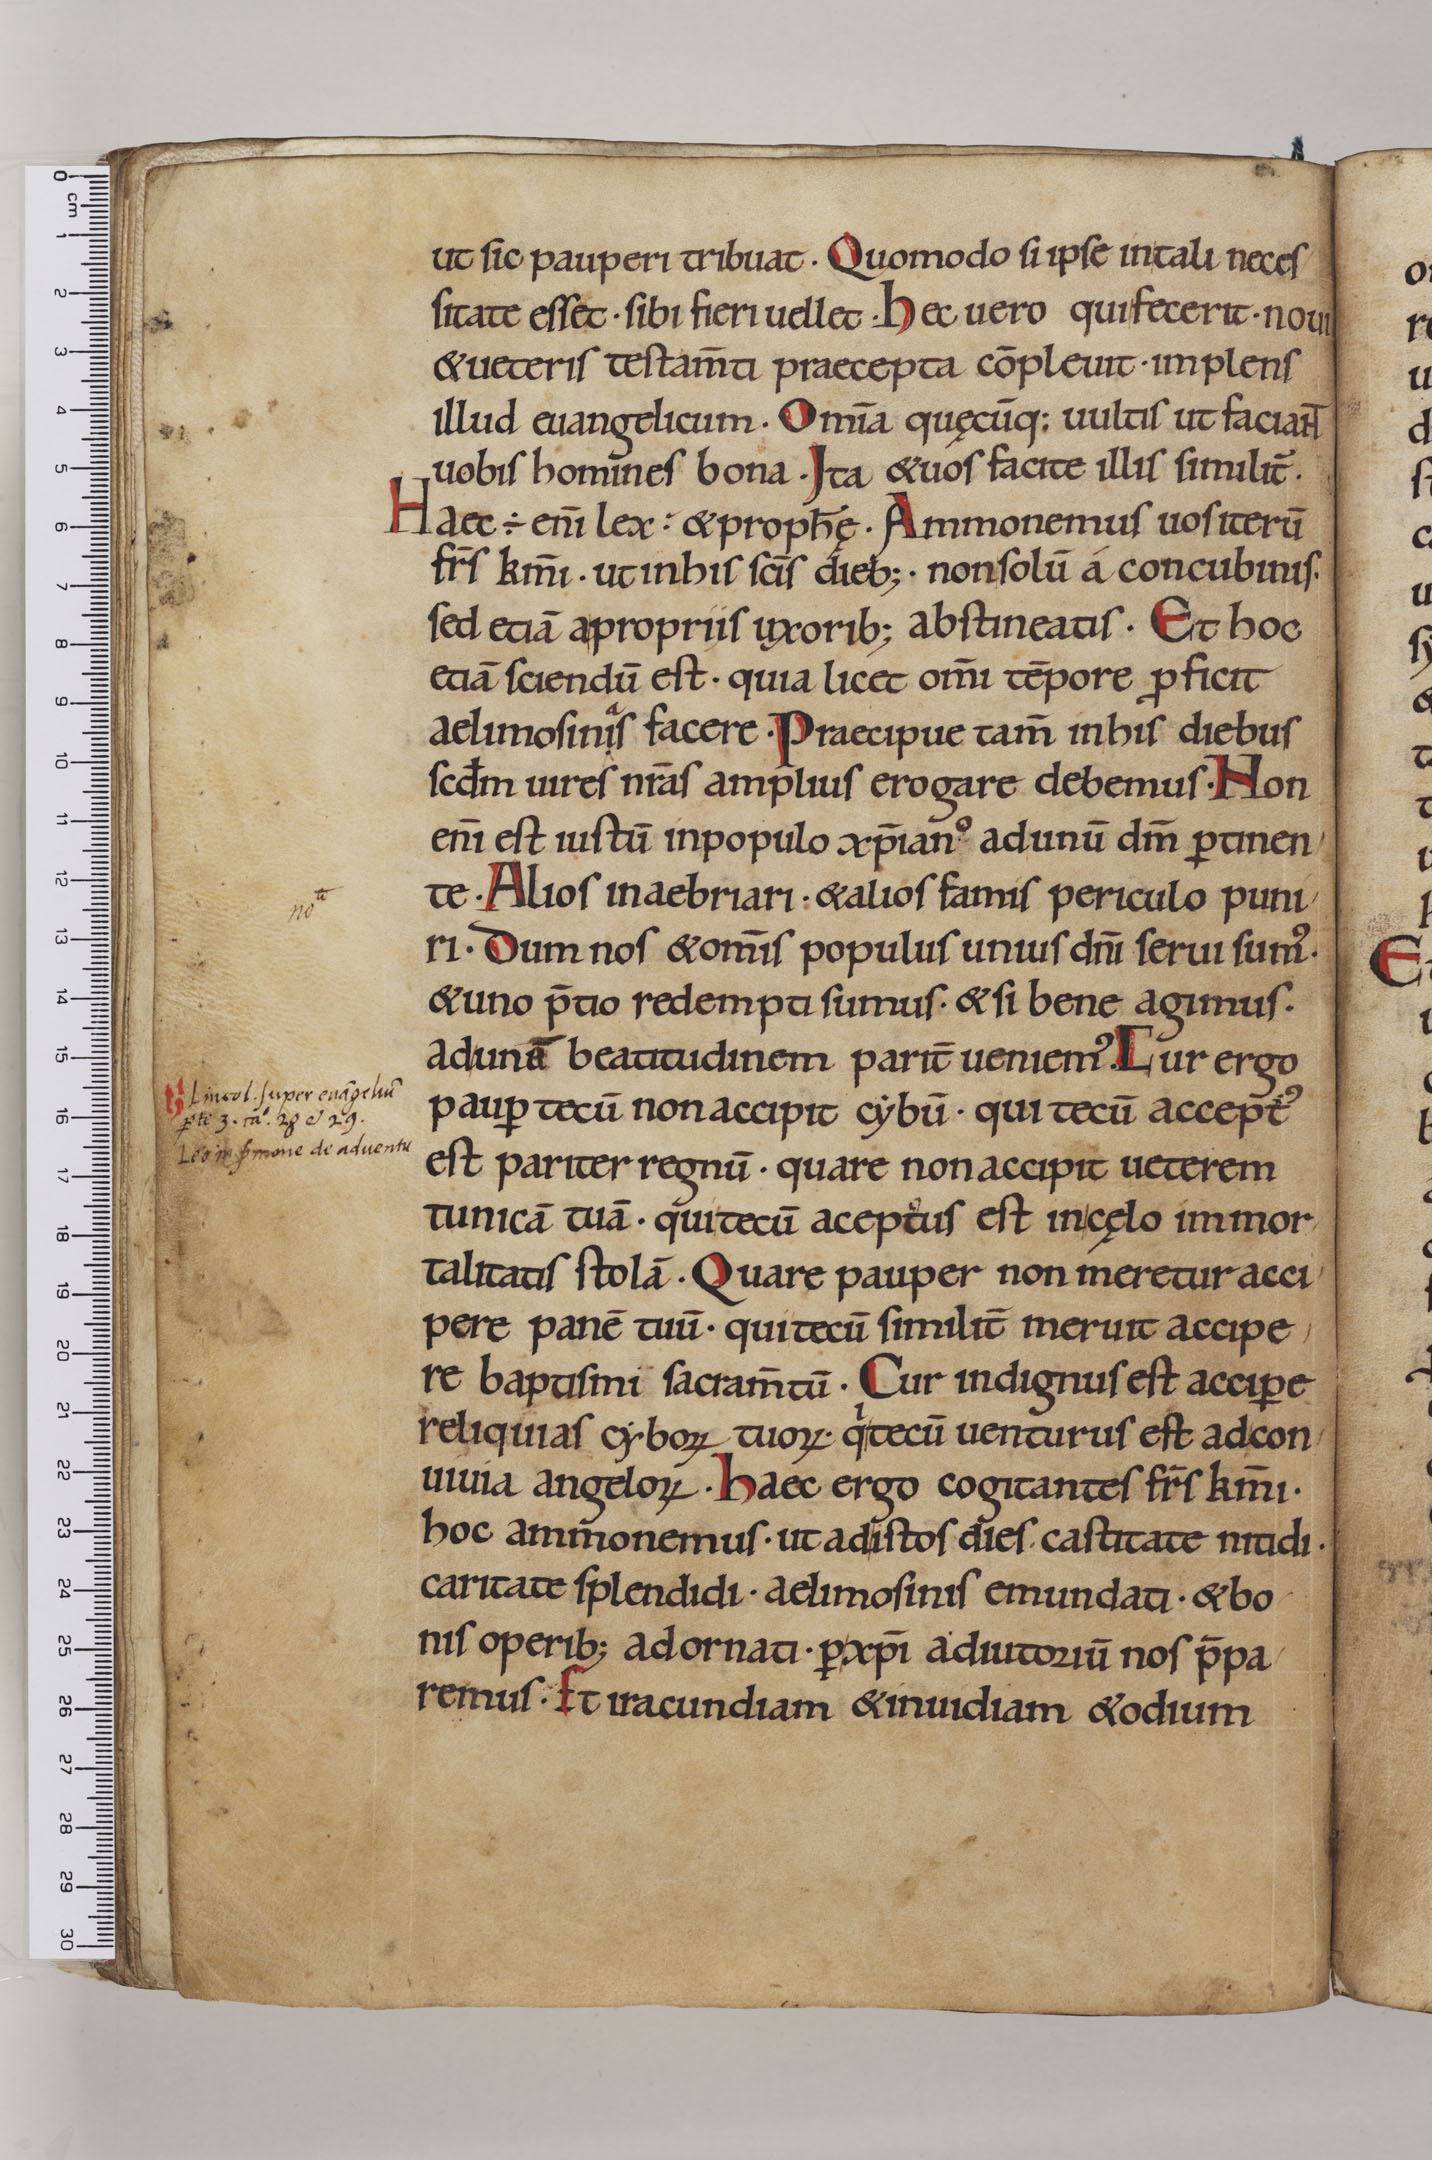 ut sic pauperi tribuat · Quomodo si ipse intali neces
sitate esset · sibi fieri uellet · hec uero qui fecerit · noui
& ueteris testam̄ti praecepta cōpleuit · implens
illud euangelicum · Om̄ia quęcūq; uultis ut faciaN̄T
uobis homines bona · Ita & uós facite illis similit̄ ·
Haec ÷ eni̅ lex : & proph̄ę · Ammonemus uos iterū
fr̄s km̄i · ut inhis sc̄is dieb; · nonsolū á concubinis ·
sed etiā apropriis uxorib; abstineatis · Et hoc
etiā sciendū est · quia licet om̄i tēpore ꝓficit
aelimosiniᵃs facere · Praecipue tam̄ inhis diebus
scđm uires nr̄as amplius erogare debemus · Non
eni̅ est iustū inpopulo xp̄ianº adunū dm̄ ꝑtinen
te · Alios inaebriari · & alios famis periculo puni
ri · Dum nos & om̄is populus unius dn̄i serui sumꝰ ·
& uno p̄tio redempti sumus · & si bene agimus ·
adunā beatitudinem parit̄ ueniemꝰ · Cur ergo
pauꝑ tecū non accipit cẏbū · qui tecū accept̄ꝰ
est pariter regnū · quare non accipit ueterem
tunicā tuā · qui tecū aceptus est incęlo immor
talitatis stolā · Quare pauper non meretur acci
pere panē tuū · qui tecū similit̄ meruit accipe
re baptismi sacram̄tū · Cur indignus est acciꝑe
reliquias cẏboꝝ tuoꝝ · qⁱ tecū uenturus est adcon
uiuia angeloꝝ · haec ergo cogitantes fr̄s km̄i ·
hoc ammonemus · ut adistos dies castitate nitidi ·
caritate splendidi · aelimosinis emundati · & bo
nis operib; adornati · ꝑ xp̄i adiutoriū nos p̄pa
remus · Et iracundiam & inuidiam & odium
noᵗᵃ
Lincol. super euāgeliū
ꝑte 3. ca°. 28 & 29.
Leo in sermone de aduentu
0
cm
1
2
3
4
5
6
7
8
9
10
11
12
13
14
15
16
17
18
19
20
21
22
23
24
25
26
27
28
29
30